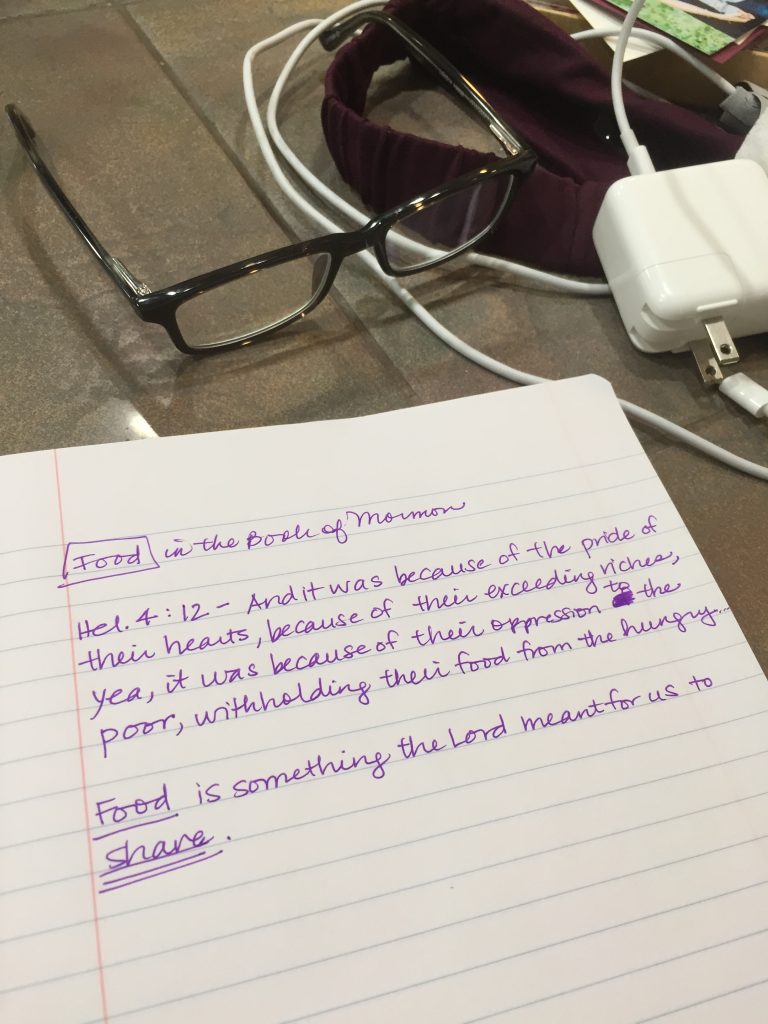 Food in the Book of Mormon
Hel. 4:12 - And it was because of the pride of
their hearts, because of their exceeding riches,
yea, it was because of their oppression to the
poor, withholding their food from the hungry...
Food is something the Lord meant for us to
share.